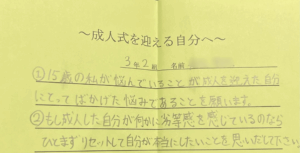 ～成人式を迎える自分へ～
3年2組 名前
①15歳の私が悩んでいることが成人を迎えた自分
にとってばかげた悩みであることを願います。
②もし成人した自分が何かに劣等感を感じているのなら
ひとまずリセットして自分が本当にしたいことを思いだして下さい。